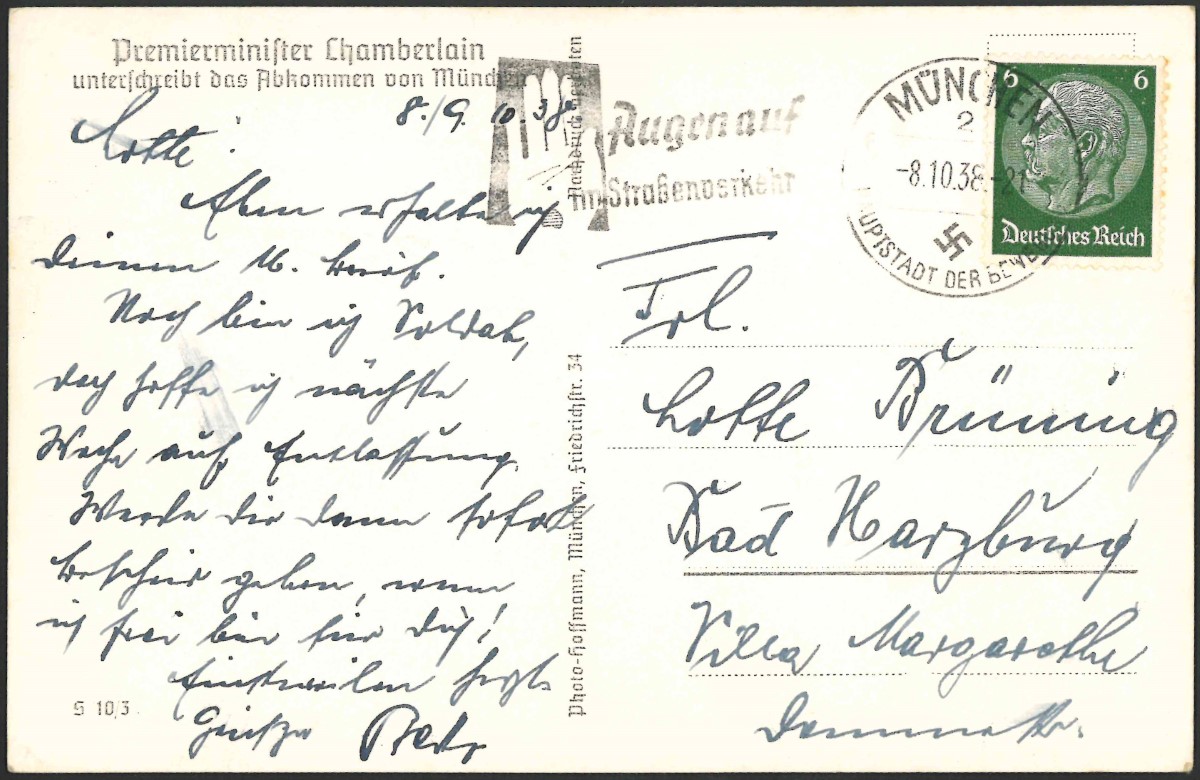 Premierminister Chamberlain
unterschreibt das Abkommen von München
8./9. 10. 38
Lotte!
Eben erhalte ich
Deinen l. Brief.
Noch bin ich Soldat,
doch hoffe ich nächste
Woche auf Entlassung.
Werde dir dann sofort
Bescheid geben, wenn
ich frei bin für Dich!
Einstweilen herzl.
Grüße
S 10/3
Photo-Hoffmann, München, Friedrichstr. 34
Nachdruck verboten
Augen auf
im Straßenverkehr
MÜNCHEN
2
-8.10.38.-21
HAUPTSTADT DER BEWEGUNG
6 6
Deutsches Reich
Frl.
Lotte Brüning
Bad Harzburg
Villa Margarethe